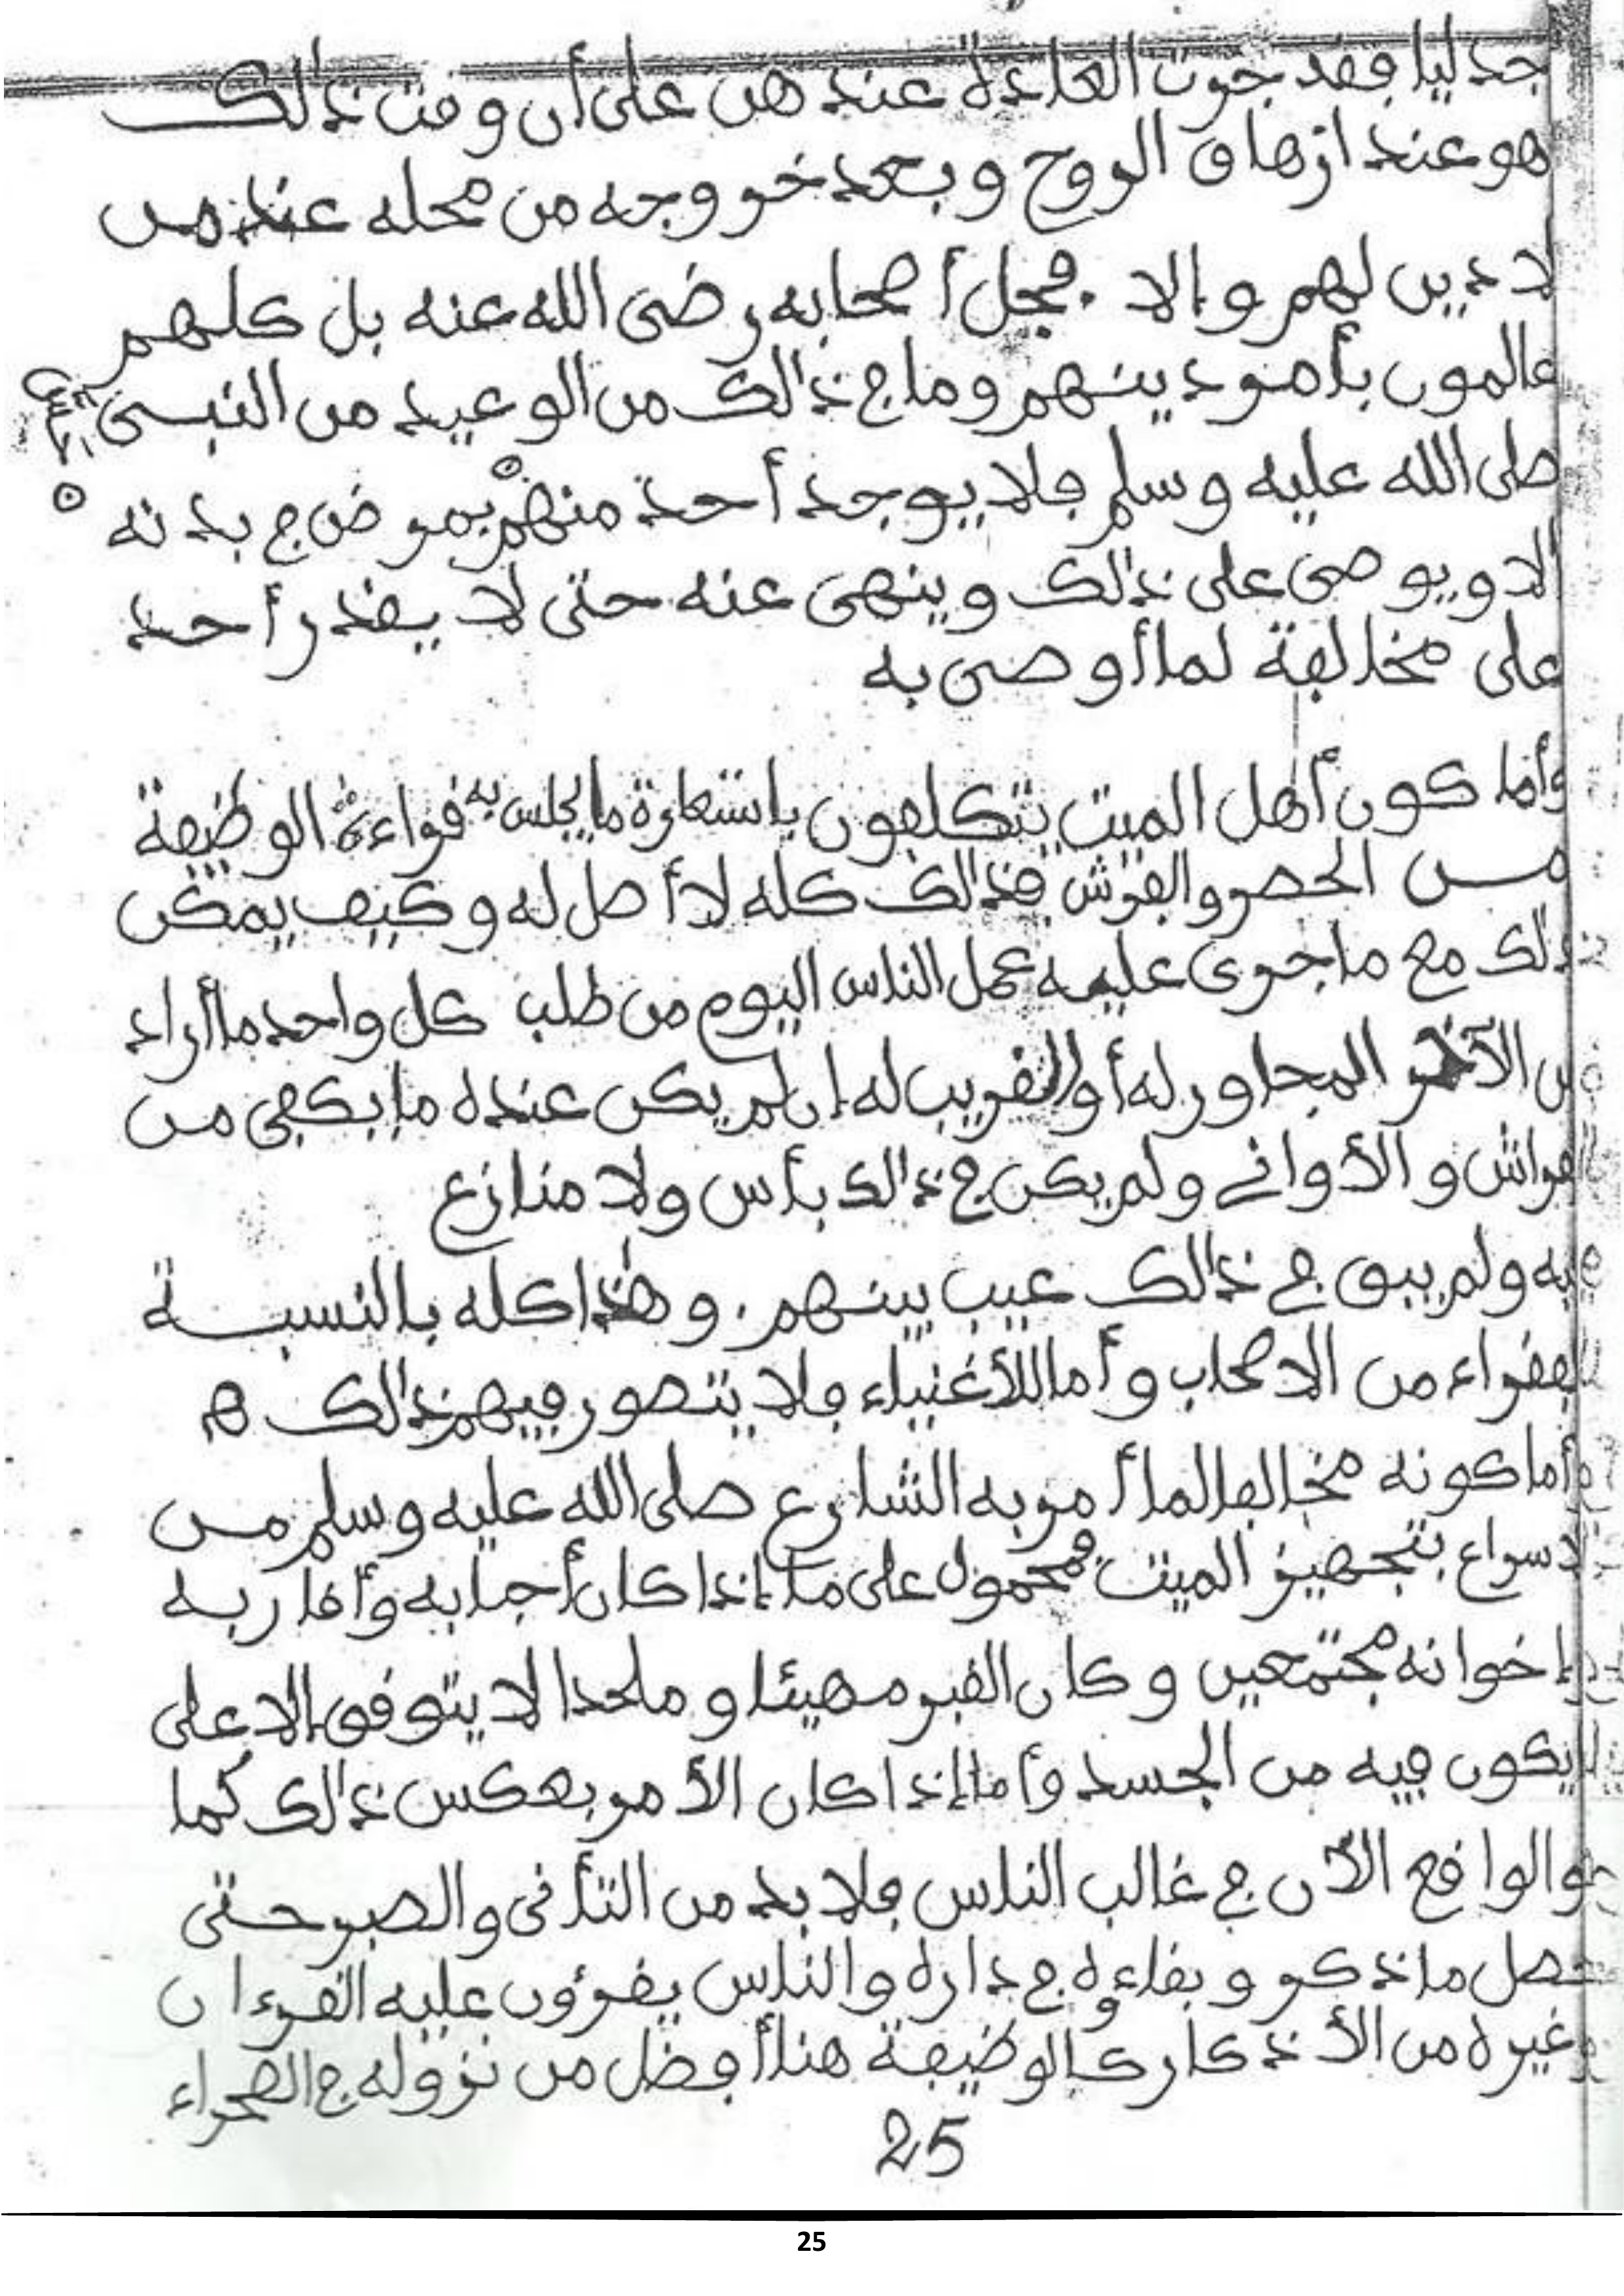 جدليا فقد جرت العادة عندهن على أن وقت ذالك
هو عند ازهاق الروح وبعد خروجه من محله عند من
لا دين لهم وإلا فجل أصحابه رضى الله عنه بل كلهم
عالمون بأمور دينهم وما في ذالك من الوعيد من النبى
صلى الله عليه وسلم فلا يوجد أحد منهم بمرض في بدنه
الا ويوصى على ذالك وينهى عنه حتى لا يقدر أحد
على مخالفة لما أوصى به
وأما كون أهل الميت يتكلفون باستعارة ما يجلس به قراءة الوظيفة
من الحصر والفرش فذالك كله لا أصل له وكيف يمكن
ذلك مع ما جرى عليه عمل الناس اليوم من طلب كل واحد ما أراد
من الآخر المجاور له أو القريب له إن لم يكن عنده ما يكفى من
الفراش والأوانى ولم يكن في ذالك بأس ولا منازع
فيه ولم يبق في ذالك عيب بينهم. وهذا كله بالنسبة
للفقراء من الاصحاب وأما للأغنياء فلا يتصور فيهم ذالك ه
وأما كونه مخالفا لما أمر به الشارع صلى الله عليه وسلم من
الاسراع بتجهيز الميت فمحمول على ما إذا كان أحبابه وأقاربه
وإخوانه مجتمعين وكان القبر مهيئا وملحدا لا يتوقف إلا على
ما يكون فيه من الجسد وأما إذا كان الأمر بعكس ذالك كما
هو الواقع الآن في غالب الناس فلا بد من التأنى والصبر حتى
يحصل ما ذكر وبقاءه في داره والناس يقرؤن عليه القرءان
وغيره من الأذكار كالوظيفة هنا أفضل من نزوله في الصحراء
25
25